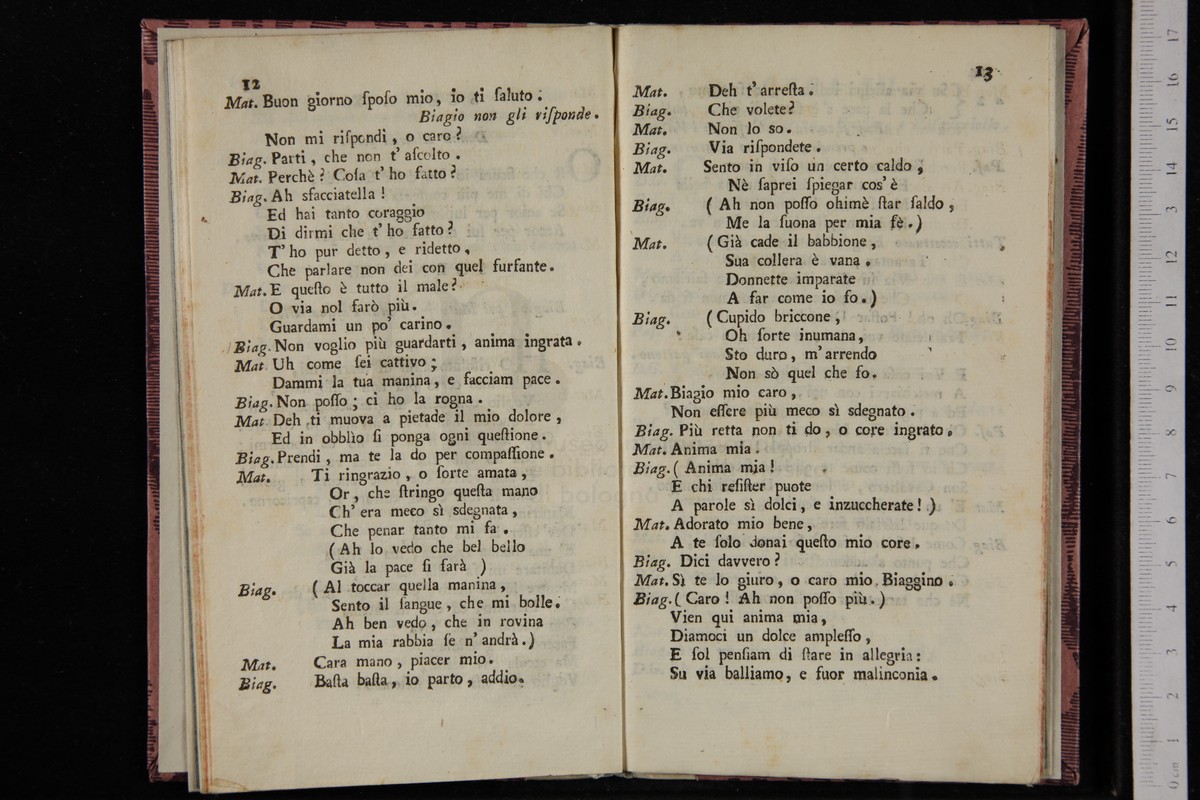 12
Mat. Buon giorno ſpoſo mio, io ti ſaluto.
Biagio non gli riſponde.
Non mi riſpondi, o caro?
Biag. Parti, che non t' aſcolto.
Mat. Perchè? Coſa t' ho fatto?
Biag. Ah sfacciatella!
Ed hai tanto coraggio
Di dirmi che t' ho fatto?
T' ho pur detto, e ridetto,
Che parlare non dei con quel furfante.
Mat. E queſto è tutto il male?
O via nol farò più.
Guardami un po' carino.
Biag. Non voglio più guardarti, anima ingrata.
Mat Uh come ſei cattivo;
Dammi la tua manina, e facciam pace.
Biag. Non poſſo; ci ho la rogna.
Mat Deh ti muova a pietade il mio dolore,
Ed in obblìo ſi ponga ogni queſtione.
Biag. Prendi, ma te la do per compaſſione.
Mat. Ti ringrazio, o ſorte amata,
Or, che ſtringo queſta mano
Ch' era meco sì sdegnata,
Che penar tanto mi fa.
(Ah lo vedo che bel bello
Già la pace ſi farà )
Biag. (Al toccar quella manina,
Sento il ſangue, che mi bolle.
Ah ben vedo, che in rovina
La mia rabbia ſe n' andrà.)
Mat. Cara mano, piacer mio.
Biag. Baſta baſta, io parto, addio.
13
Mat. Deh t' arreſta.
Biag. Che volete?
Mat. Non lo so.
Biag. Via riſpondete.
Mat. Sento in viſo un certo caldo,
Nè ſaprei ſpiegar cos' è
Biag. (Ah non poſſo ohimè ſtar ſaldo,
Me la ſuona per mia fè.)
Mat. (Già cade il babbione,
Sua collera è vana.
Donnette imparate
A far come io fo.)
Biag. (Cupido briccone,
Oh ſorte inumana,
Sto duro, m' arrendo
Non sò quel che fo.
Mat. Biagio mio caro,
Non eſſere più meco sì sdegnato.
Biag. Più retta non ti do, o core ingrato.
Mat. Anima mia.
Biag. ( Anima mia!
E chi reſiſter puote
A parole sì dolci, e inzuccherate! )
Mat. Adorato mio bene,
A te ſolo donai queſto mio core.
Biag. Dici davvero?
Mat. Sì te lo giuro, o caro mio Biaggino.
Biag. ( Caro! Ah non poſſo più.)
Vien qui anima mia,
Diamoci un dolce ampleſſo,
E ſol penſiam di ſtare in allegria:
Su via balliamo, e fuor malinconia.